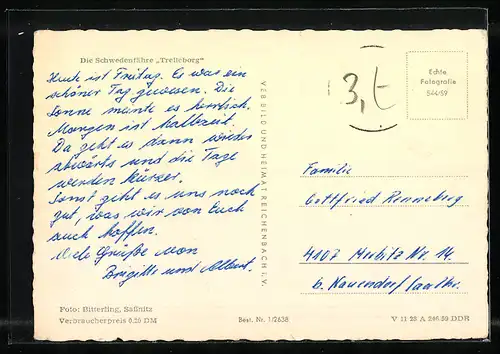 Die Schwedenfähre „Trelleborg"
Heute ist Freitag. Es was ein
schöner Tag gewesen. Die
Sonne meinte es herrlich.
Morgen ist Halbzeit.
Da geht es dann wieder
abwärts und die Tage
werden kürzer.
Sonst geht es uns noch
gut, was wir von Euch
auch hoffen.
Viele Grüße von
Brigitte und Albert.
Foto: Bitterling, Saßnitz
Verbraucherpreis 0,20 DM
VEB BILD UND HEIMAT REICHENBACH I. V.
Best. Nr. 1/2638
3,-
Echte
Fotografie
544/59
Familie
Gottfried Renneberg
4107 Merbitz Nr. 14
b. Nauendorf/Saalkr.
V 11 28 A 246/59 DDR